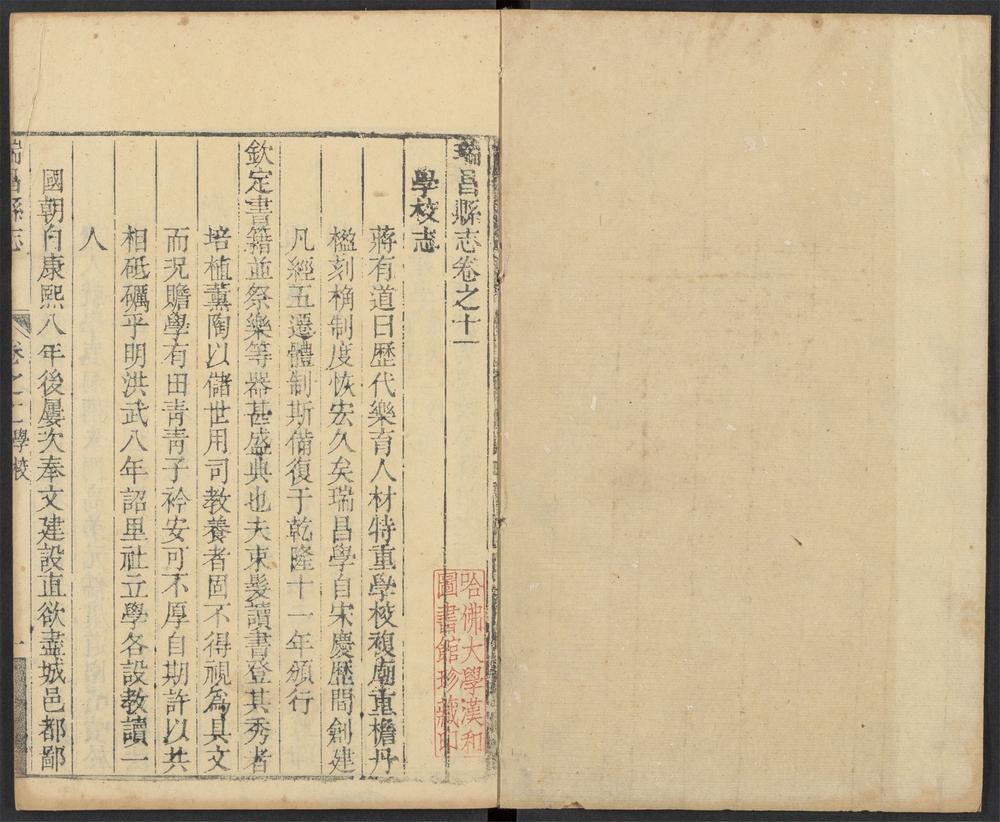 瑞昌縣志卷之十一
學校志
蔣有道曰歷代樂育人材特重學校複廟重檐丹
楹刻桷制度恢宏久矣瑞昌學自宋慶歷間創建
凡經五遷體制斯備復于乾隆十一年頒行
欽定書籍並祭樂等器甚盛典也夫束髮讀書登其秀者
培植薰陶以儲世用司教養者固不得視為具文
而況贍學有田青青子衿安可不厚自期許以共
相砥礪乎明洪武八年詔里社立學各設教讀一
人
國朝自康熙八年後屢次奉文建設直欲盡城邑都鄙
瑞昌縣志
卷之
學校
一
哈佛大學漢和
圖書館珍藏印